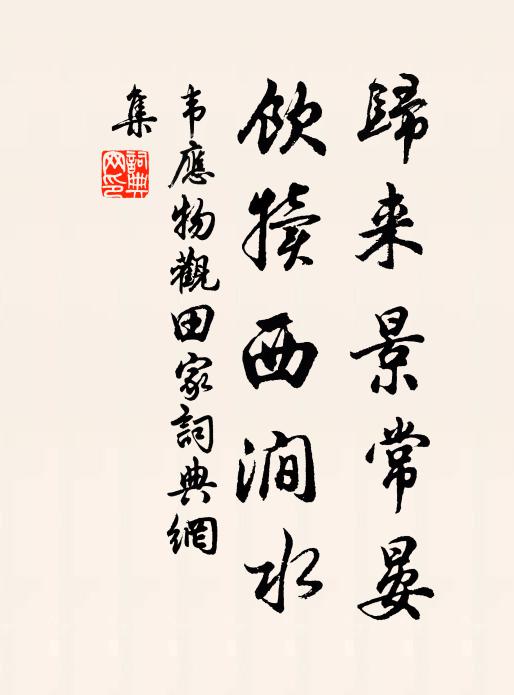 歸来景常晏
飲犢西澗水
韦應物觀田家詞典網
集
詞典
网印